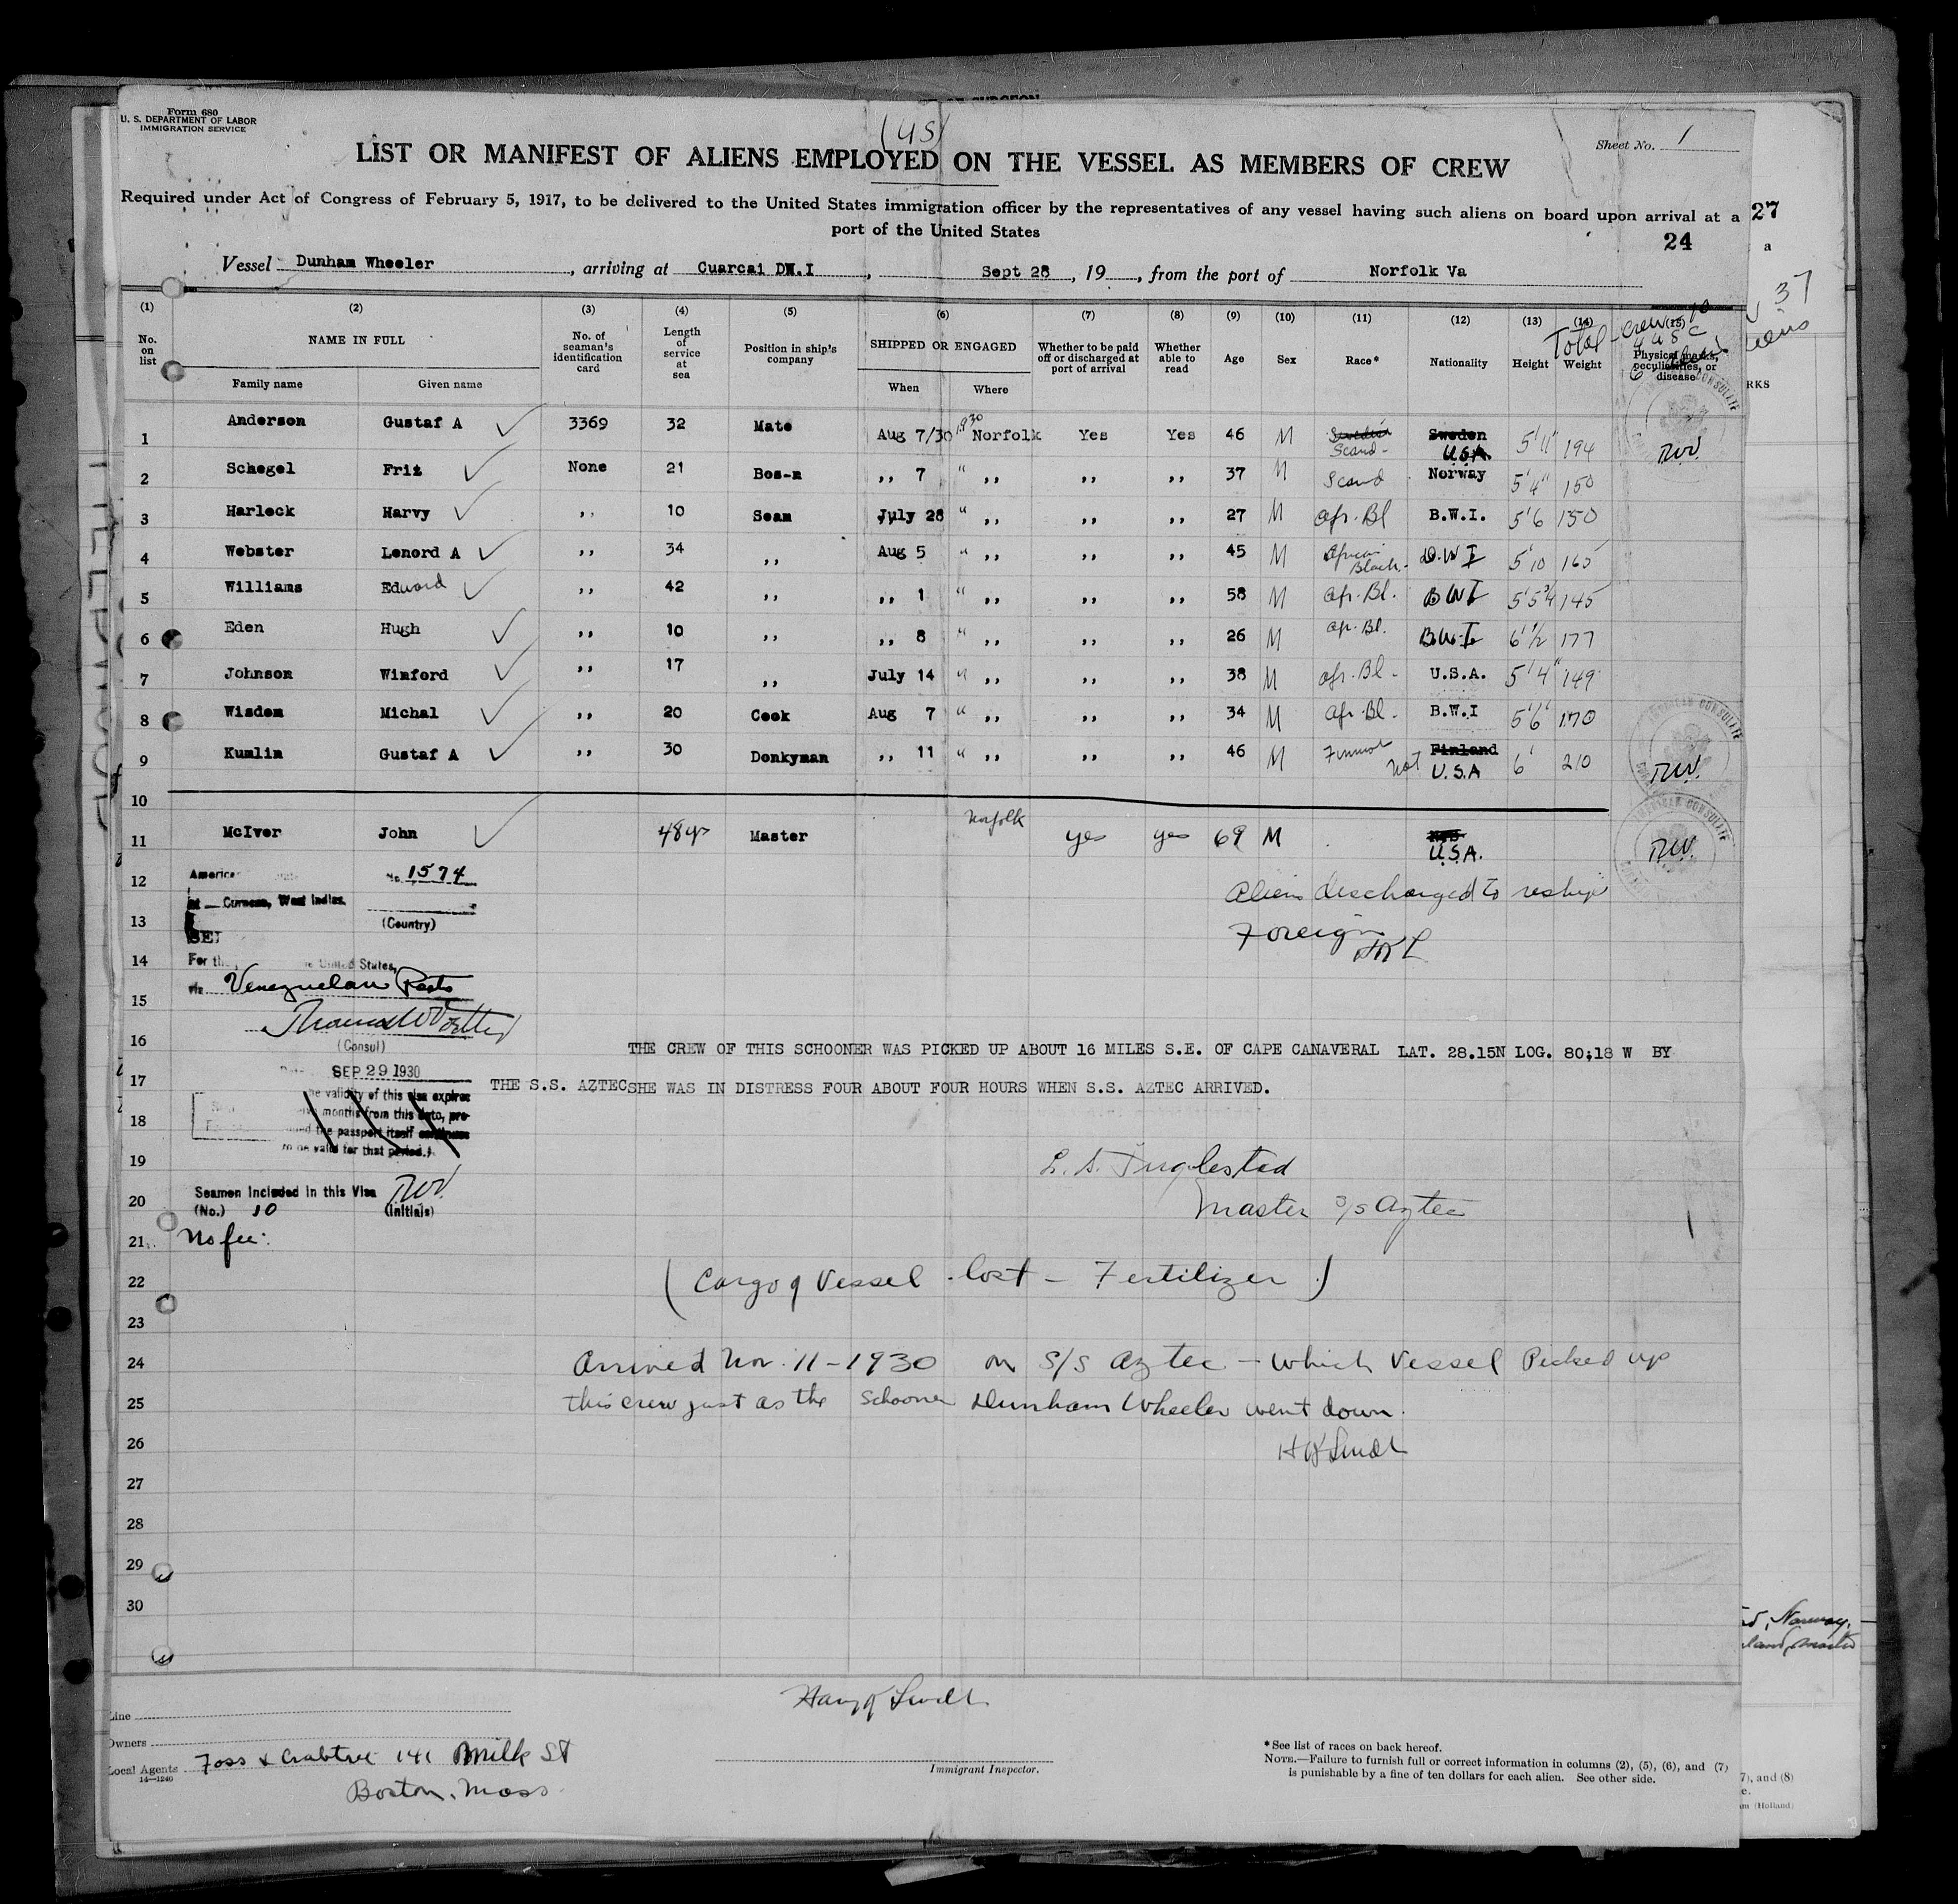 Form 680
U. S. DEPARTMENT OF LABOR
IMMIGRATION SERVICE
(US)
Sheet No. 1
LIST OR MANIFEST OF ALIENS EMPLOYED ON THE VESSEL AS MEMBERS OF CREW
Required under Act of Congress of February 5, 1917, to be delivered to the United States immigration officer by the representatives of any vessel having such aliens on board upon arrival at a
port of the United States
27
24
a
Vessel Dunham Wheeler, arriving at Cuarcai DW.I, Sept 28, 19, from the port of Norfolk Va
37
(1) (2) (3) (4) (5) (6) (7) (8) (9) (10) (11) (12) (13) (14) (15)
Total Crew 10
4 USC
No. on list NAME IN FULL No. of seaman's identification card Length of service at sea Position in ship's company SHIPPED OR ENGAGED Whether to be paid off or discharged at port of arrival Whether able to read Age Sex Race* Nationality Height Weight Physical marks, peculiarities, or disease
Family name Given name When Where
RKS
1 Anderson Gustaf A 3369 32 Mate Aug 7/30 1930 Norfolk Yes Yes 46 M Swedish Scand- Sweden U.S.A. 5'11" 194
2 Schegel Fritz None 21 Bos-n ,, 7 " ,, ,, ,, 37 M Scand Norway 5'4" 150
3 Harlock Harvy ,, 10 Seam July 28 " ,, ,, ,, 27 M Afr. Bl B.W.I. 5'6 150
4 Webster Lenord A ,, 34 ,, Aug 5 " ,, ,, ,, 45 M African Black- D.W.I 5'10 165
5 Williams Edward ,, 42 ,, ,, 1 " ,, ,, ,, 58 M Afr. Bl. B W I 5'5 3/4 145
6 Eden Hugh ,, 10 ,, ,, 8 " ,, ,, ,, 26 M Afr. Bl. B.W.I. 6'1/2 177
7 Johnson Winford ,, 17 ,, July 14 " ,, ,, ,, 38 M Afr. Bl- U.S.A. 5'4" 149
8 Wisdom Michal ,, 20 Cook Aug 7 " ,, ,, ,, 34 M Afr. Bl- B.W.I 5'6' 170
9 Kumlin Gustaf A ,, 30 Donkyman ,, 11 " ,, ,, ,, 46 M Finnish Nat Finland U.S.A 6' 210
10
11 McIver John 48 yr Master Norfolk yes yes 69 M U.S.A.
12 American No. 1574
at Curacao, West Indies.
Aliens discharged to reship
13 (Country)
Foreign
SE
14 For the United States,
via Venezuelan Ports
15
16 (Consul)
THE CREW OF THIS SCHOONER WAS PICKED UP ABOUT 16 MILES S.E. OF CAPE CANAVERAL LAT. 28.15N LOG. 80;18 W BY
SEP 29 1930
17 THE S.S. AZTECSHE WAS IN DISTRESS FOUR ABOUT FOUR HOURS WHEN S.S. AZTEC ARRIVED.
the validity of this visa expires
months from this date, pro-
18 the passport itself continues
to be valid for that period.)
19
Seamen Included in this Visa
20 (No.) 10 (Initials)
Master S/S Aztec
21 No fee.
22 (Cargo of Vessel lost - Fertilizer)
23
24 Arrived Nov. 11-1930 on S/S Aztec - which Vessel Picked up
25 this crew just as the Schooner Dunham Wheeler went down.
26
27
28
29
30
Norway,
Line
Owners
Local Agents Foss & Crabtree 141 Milk St
14-1240
Boston, Mass
Immigrant Inspector.
*See list of races on back hereof.
NOTE.—Failure to furnish full or correct information in columns (2), (5), (6), and (7)
is punishable by a fine of ten dollars for each alien. See other side.
7), and (8)
(Holland)